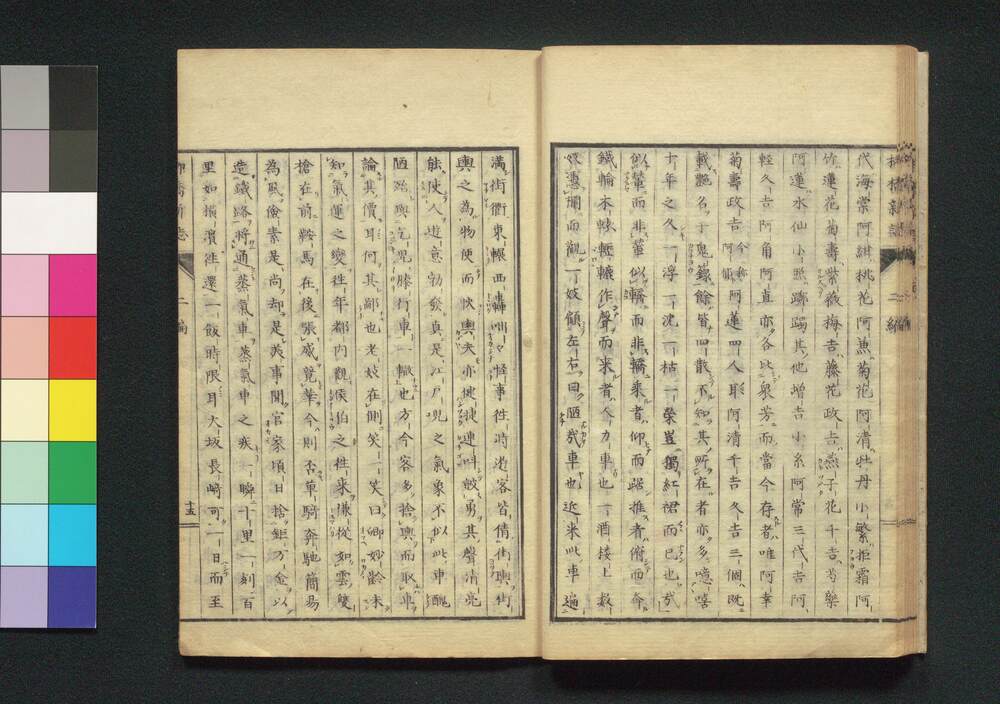 代海棠阿紺桃花阿魚菊花阿清牡丹小繁拒霜阿
竹蓮花菊壽紫薇梅吉藤花政吉燕子花千吉芍藥
阿蓮水仙小照躑躅其他增吉小糸阿常三代吉阿
輕久吉阿角阿直亦各比衆芳而當今存者唯阿幸
菊壽政吉今稱阿節阿蓮四人耳阿清千吉久吉三個既
載艷名于鬼錄餘皆四散不知其所在者亦多噫嘻
十年之久一浮一沈一枯一榮豈獨紅裙而已也哉
似輦而非輦似轎而非轎乘者仰而踞推者俯而奔
鐵輪木轅轣轆作聲而來者人力車也一酒樓上數
妓憑欄而觀一妓顧左右曰陋哉車也近來此車遍
滿街衢東輾西轟叫々怪事徃時遊客皆倩街輿街
輿之為物便而快輿夫亦㨗捷連叫皷勇其聲清亮
能使人遊意勃發真是江戸兒之氣象不似此車醜
陋殆與乞兒膝行車一轍也方今客多捨輿而取車
論其價耳何其鄙也老妓在側笑一笑曰卿妙齡未
知氣運之變徃年都内觀侯伯之徃來傔從如雲雙
槍在前鞍馬在後張威競華今則否單騎奔馳簡易
為風儉素是尚却是美事聞官家頃日捨鉅万金以
造鐵路將通蒸氣車蒸氣車之疾一瞬十里一刻百
里如橫濱徃還一飯時限耳大坂長崎可一日而至
柳橋新誌
二編
十五